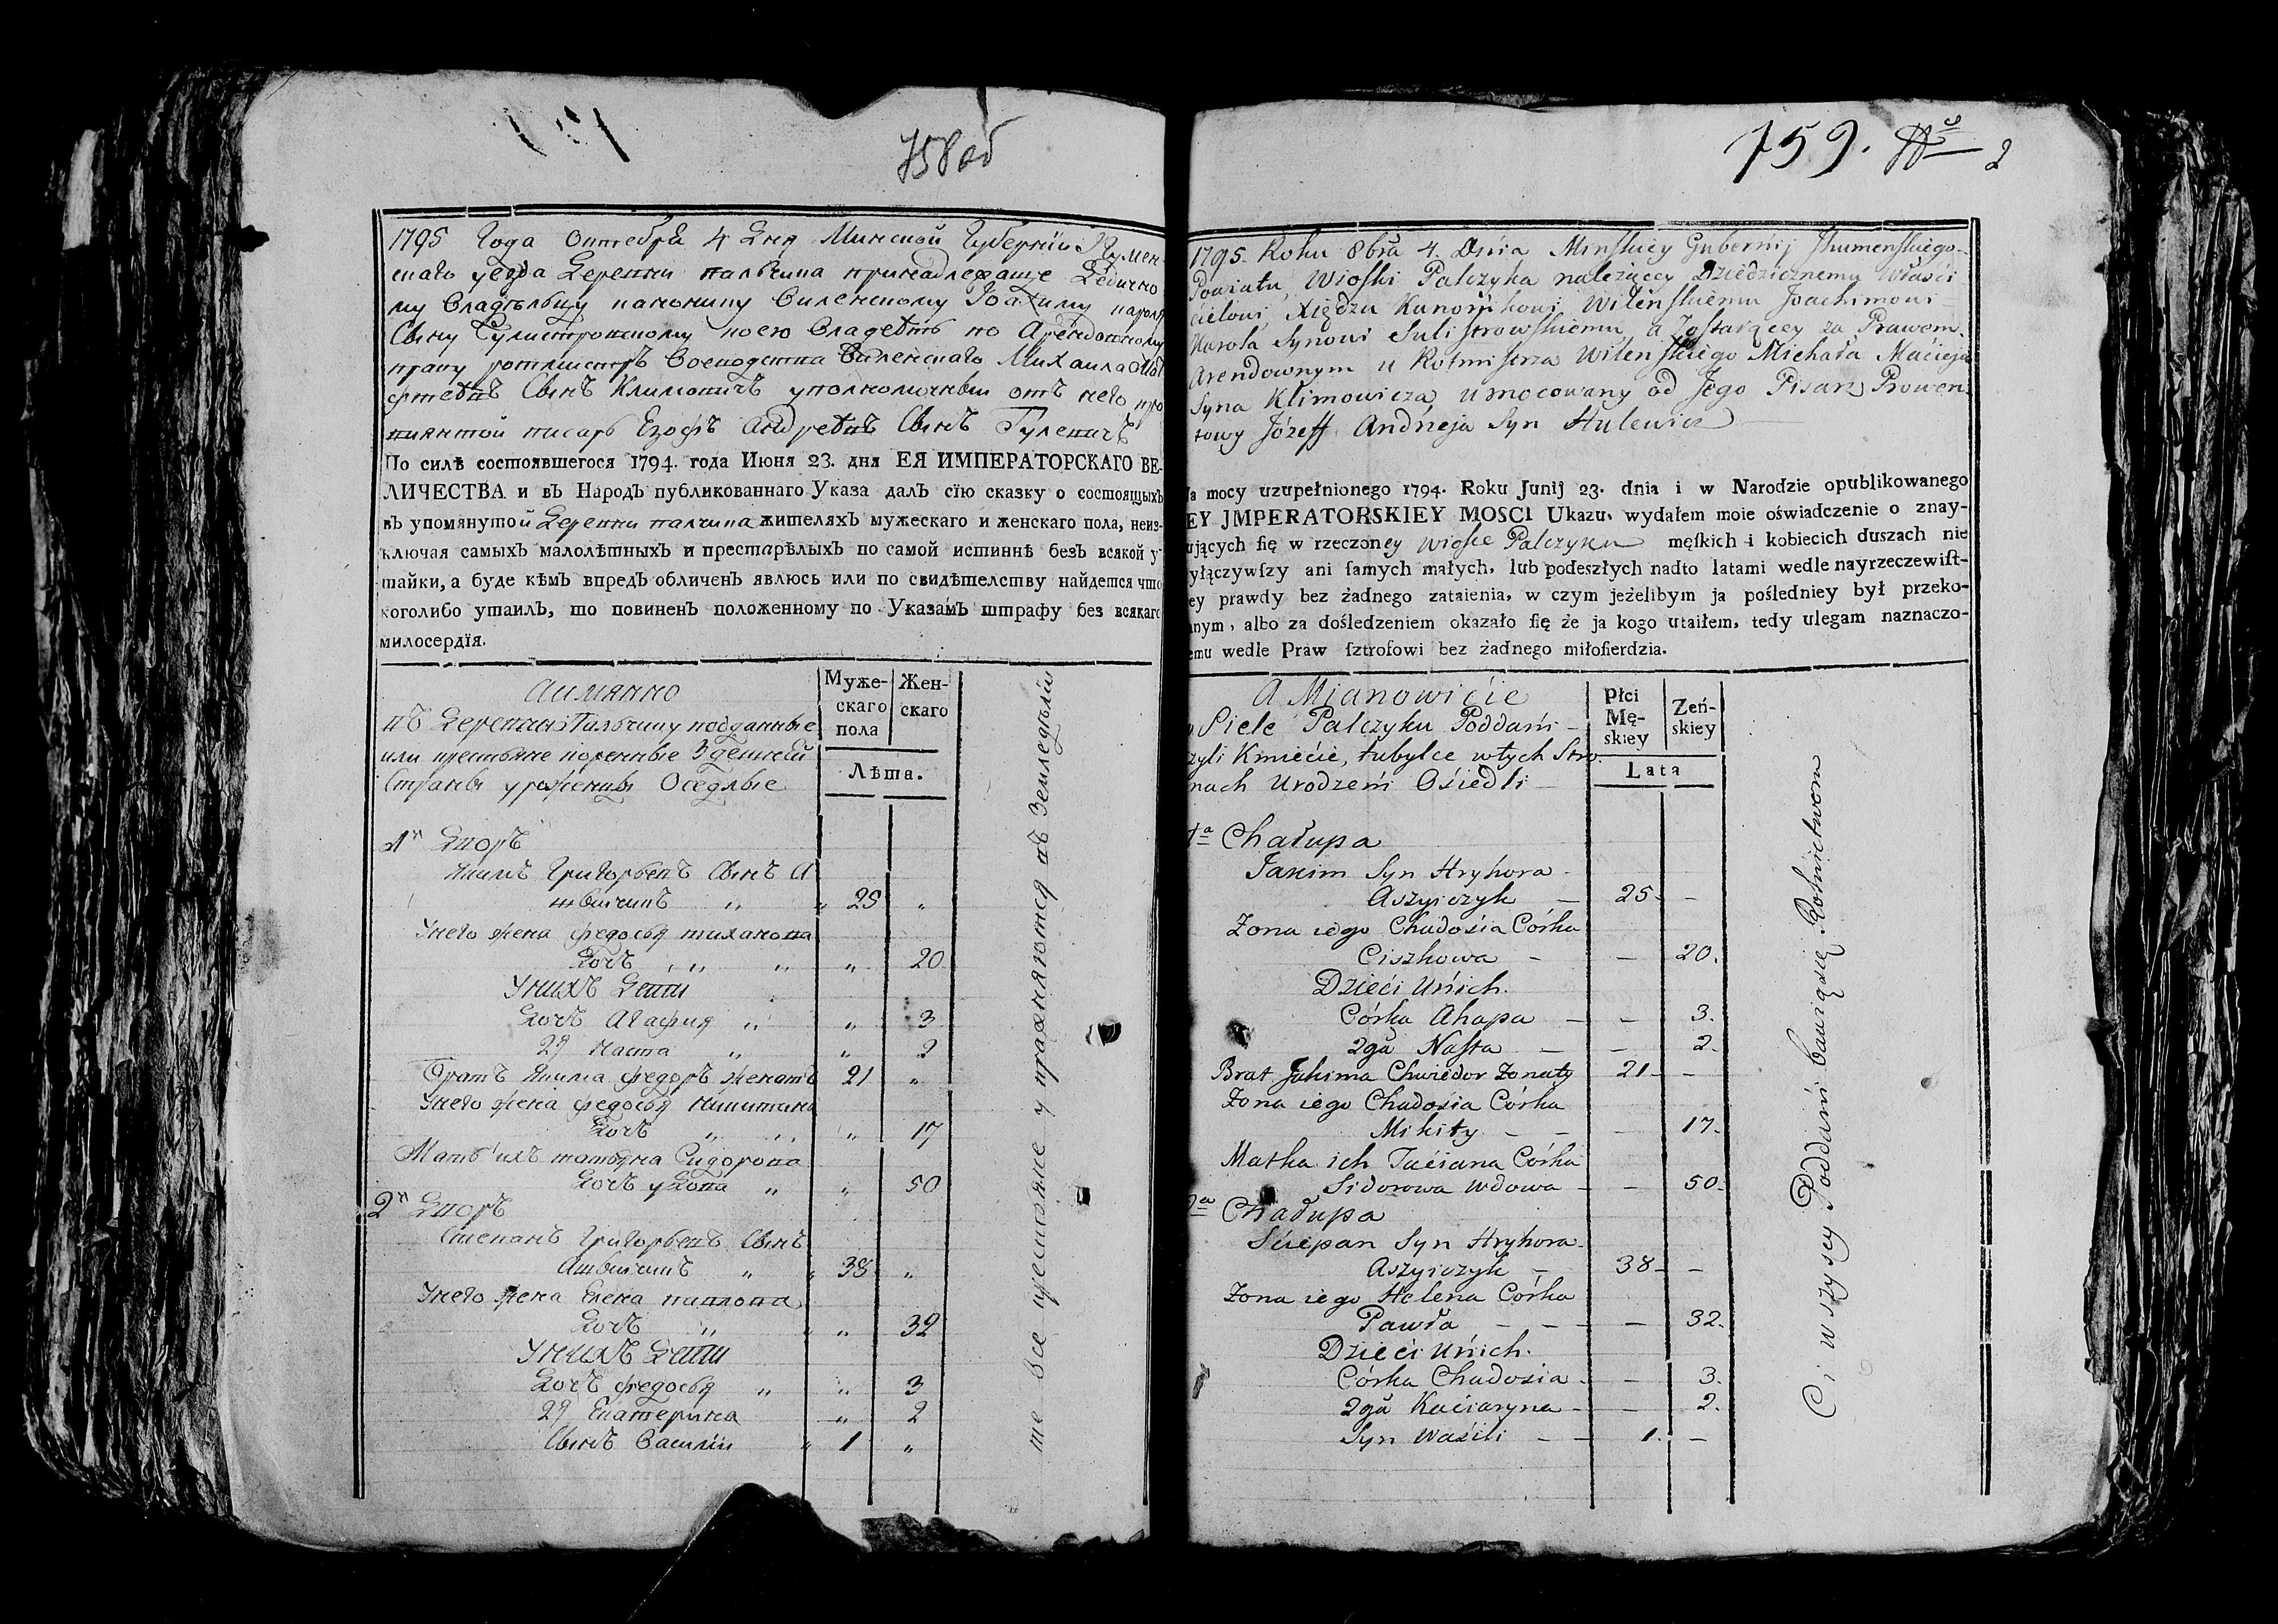 758 об
1795 Года Октебра 4 Дня Минской Губернїи Игумен-
скаго уезда Деревни пальчика принадлежаще Дедично
му Владѣльцу канонику Виленскому Іоахиму кароля
Сыну Сулистровскому коею Владеетъ по Арендовному
праву ротмистръ Воеводства Виленскаго Михаила Мат
феевъ Сынъ Климовичъ уполномочный отъ него про
виянтой писарь Езофъ Андреевъ Сынъ Гулевичъ
По силѣ состоявшегося 1794. года Июня 23. дня ЕЯ ИМПЕРАТОРСКАГО ВЕ-
ЛИЧЕСТВА и въ Народъ публикованнаго Указа далъ сїю сказку о состоящыхъ
въ упомянутой Деревни палчика жителяхъ мужескаго и женскаго пола, неиз-
ключая самыхъ малолѣтныхъ и престарѣлыхъ по самой истиннѣ безъ всякой у
тайки, а буде кѣмъ впредъ обличенъ явлюсь или по свидѣтелству найдется что
коголибо утаилъ, то повиненъ положенному по Указамъ штрафу без всякаго
милосердїя.
Муже-
скаго
пола
Жен-
скаго
Лѣта.
Аимянно
въ Деревни Пальчику подданные
или крестьяне коренные Здешней
Страны уроженцы Оседлые
1й Дворъ
Якимъ Григорьевъ Сынъ А
швичикъ „ „ 25 „
Унего жена федосья тишкова
Дочъ „ „ „ „ 20
Унихъ Дети
Дочъ Агафия „ „ 3
2я Наста „ „ 2
Братъ Якима федоръ женатъ 21 „
Унего жена федосья Никитина
Дочъ „ „ „ 17
Мать ихъ татьяна Сидорова
Дочъ удова „ „ 50
2й Дворъ
Степанъ Григорьевъ Сынъ
Ашвичикъ „ „ 38 „
Унего жена Елена павлова
Дочъ „ „ „ 32
Унихъ Дети
Дочъ федосья „ „ 3
2я Екатерина „ 2
Сынъ Василїи „ 1 „
те Все крестьяне упражняются въ Земледѣлїи
759. № 2
1795. Roku 8bra 4. Dnia Minskiey Gubernij Jhumenskiego-
Powiatu, Wioski Palczyka należącey Dziedzicznemu Właści
cielowi, Xiędzu Kanonikowi Wilenskiemu Joachimowi
Karola Synowi Sulistrowskiemu, a Zostaiącey za Prawem
Arendownym u Rotmistrza Wilenskiego Michała Macieja
Syna Klimowicza, umocowany od Jego Pisarz Prowen-
towy Józeff Andrzeja Syn Hulewicz
Na mocy uzupełnionego 1794. Roku Junij 23. dnia i w Narodzie opublikowanego
EY JMPERATORSKIEY MOSCI Ukazu, wydałem moie oświadczenie o znay-
ujących ſię w rzeczoney wiosce Palczyku męſkich i kobiecich duszach nie
yłączywſzy ani ſamych małych, lub podeszłych nadto latami wedle nayrzeczewiſt-
ey prawdy bez żadnego zataienia, w czym jeżelibym ja poſledniey był przeko-
nym, albo za doſledzeniem okazało ſię że ja kogo utaiłem, tedy ulegam naznaczo-
emu wedle Praw ſztrofowi bez żadnego miłoſierdzia.
płci
Mę-
skiey
Zeń-
skiey
Lata
A Mianowicie
w Siele Palczyku Poddani
czyli Kmiećie, tubylce wtych Stro
nach Urodzeni Osiedli
1a Chałupa
Jakim Syn Hryhora
Aszyiczyk — 25. —
Zona iego Chadosia Córka
Ciszkowa — — 20.
Dzieci Unich.
Córka Ahapa — — 3.
2ga Nasta — — 2.
Brat Jakima Chwiedor Zonaty 21 —
Zona iego Chadosia Córka
Mikity — — — 17.
Matka ich Taciana Córka
Sidorowa Wdowa — — 50.
2a Chałupa
Sciepan Syn Hryhora
Aszyiczyk — 38 — —
Zona iego Helena Córka
Pawła — — — 32.
Dzieci Unich.
Córka Chadosia — — 3.
2ga Kaciaryna — — 2.
Syn Wasili — — 1. —
Ci wszyscy Poddani bawią się Rolnictwem